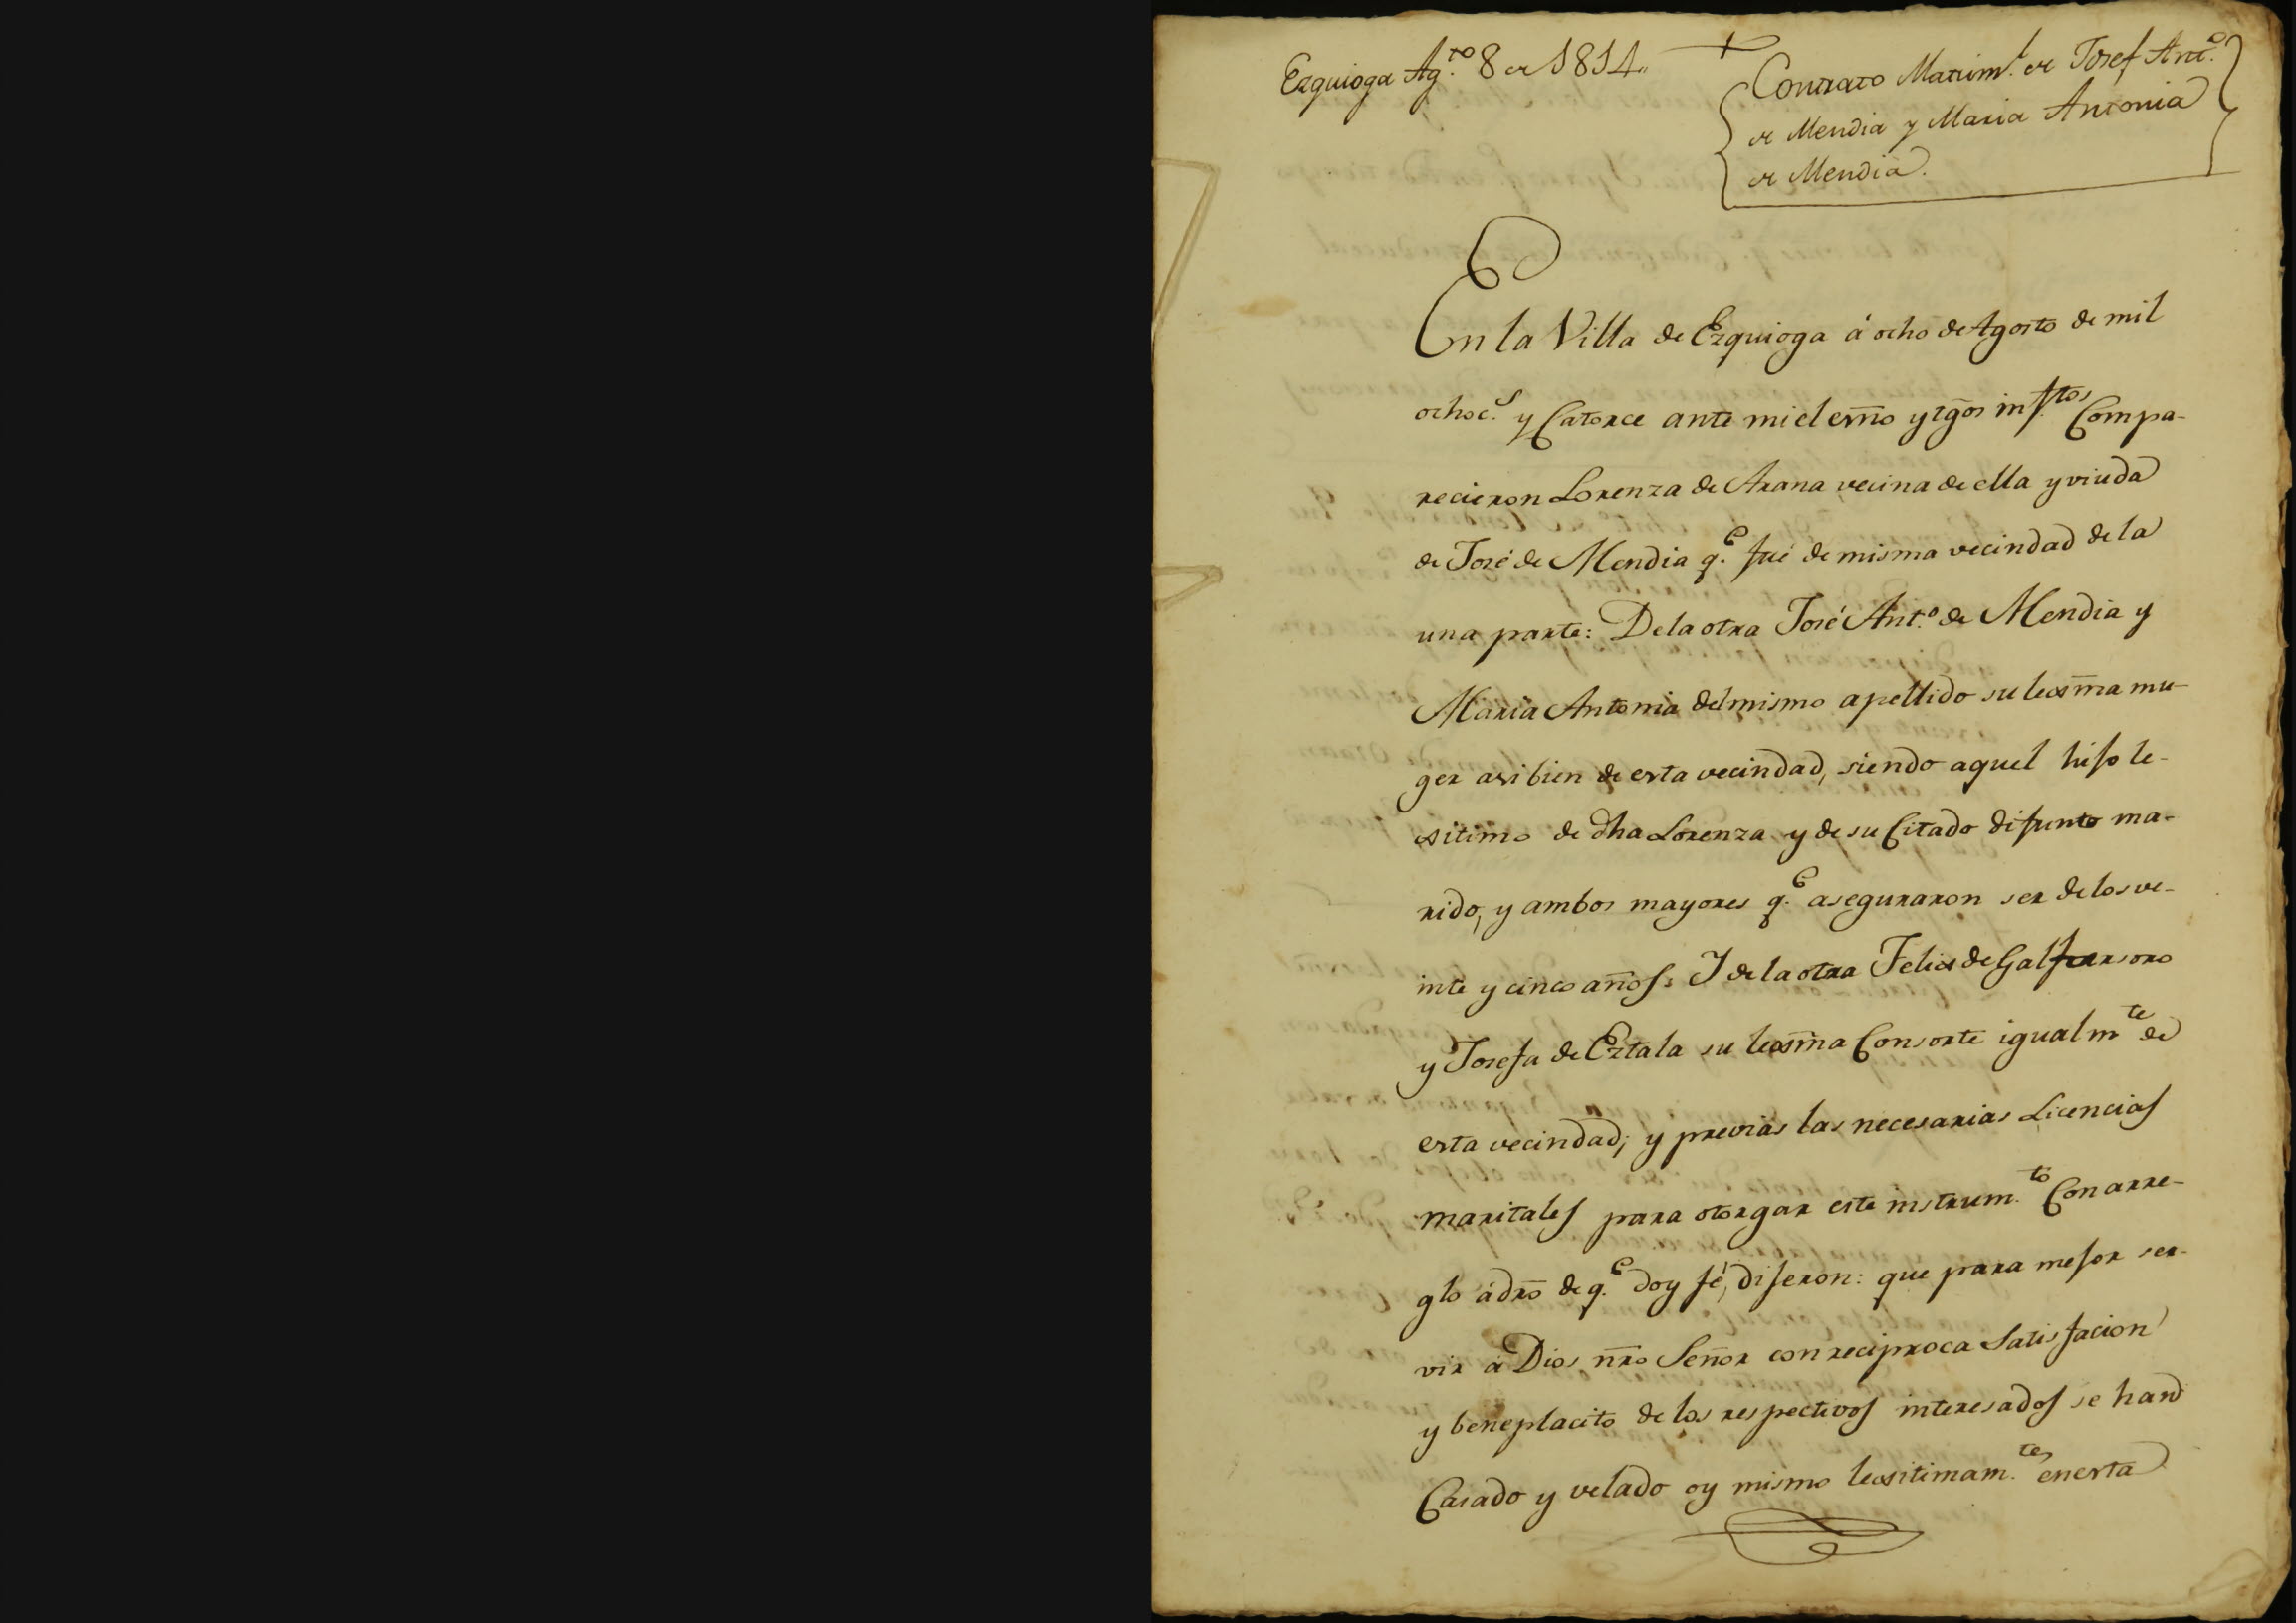 Ezquioga Ag.to 8 de 1814.
Contrato Matrim.l de Josef Ant.o
de Mendia y Maria Antonia
de Mendia.
En la Villa de Ezquioga á ocho de Agosto de mil
ochoc.s y Catorce ante mi el esño y tgos inf.tos Compa-
recieron Lorenza de Arana vecina de ella y viuda
de José de Mendia q.e fué de misma vecindad de la
una parte: De la otra José Ant.o de Mendia y
Maria Antonia del mismo apellido su lexma mu-
ger asi bien de esta vecindad, siendo aquel hijo le-
xitimo de dha Lorenza y de su Citado difunto ma-
rido, y ambos mayores q.e aseguraron ser de los ve-
inte y cinco años: Y de la otra Felix de Galfarsoro
y Josefa de Eztala su lexma Consorte igualm.te de
esta vecindad; y previas las necesarias Licencias
maritales para otorgar este instrum.to Con arre-
glo á dro de q.e doy fé, dijeron: que para mejor ser-
vir á Dios nro Señor con reciproca Satisfacion
y beneplacito de los respectivos interesados se han
Casado y velado oy mismo lexitimam.te en esta